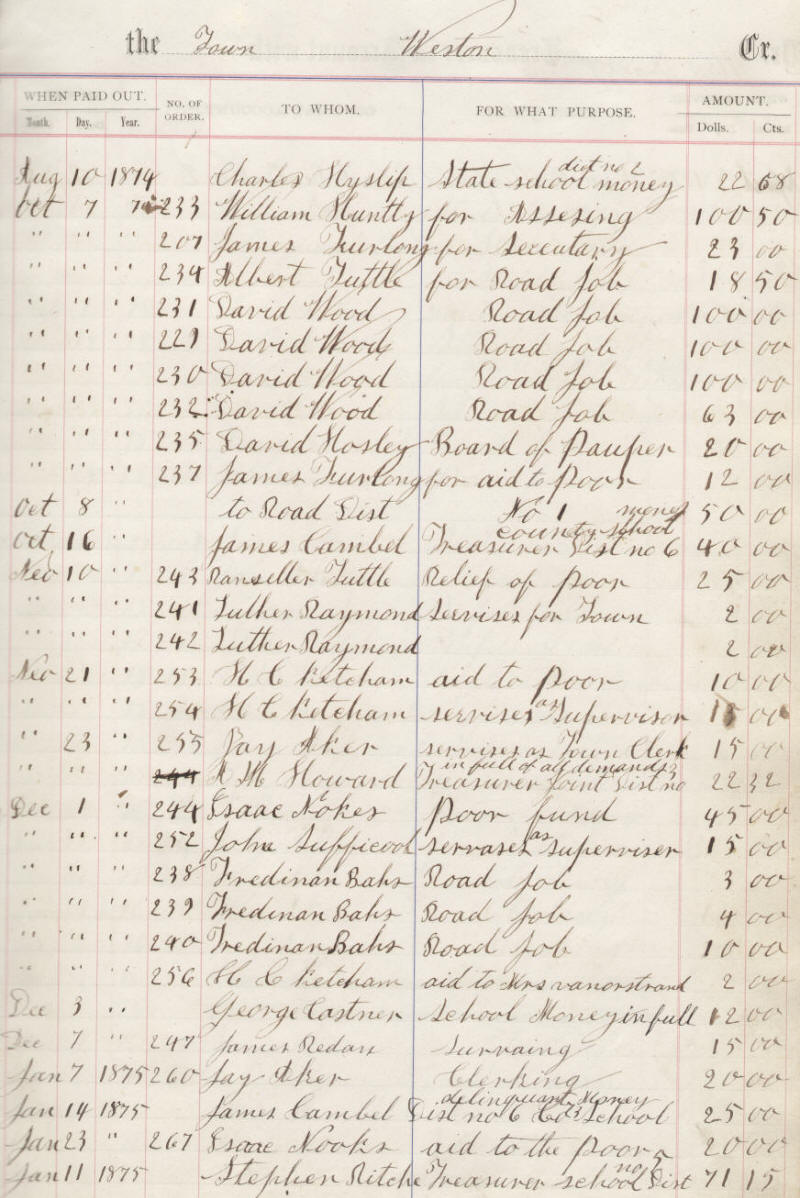 the Town Weston Cr.
WHEN PAID OUT. NO. OF ORDER. TO WHOM. FOR WHAT PURPOSE. AMOUNT.
Month. Day. Year. Dolls. Cts.
Aug 10 1874 Charles Hyslip State school dist no 2 money 22 68
Oct 7 74 233 William Huntly for Assesing 100 50
" " " 207 James Furlong for Secutary 23 00
" " " 234 Albert Tuttle for Road Job 18 50
" " " 231 David Wood Road Job 100 00
" " " 229 David Wood Road Job 100 00
" " " 230 David Wood Road Job 100 00
" " " 232 David Wood Road Job 63 00
" " " 235 David Hosley Board of Pauper 20 00
" " " 237 James Furlong for aid to Poor 12 00
Oct 8 " to Road Dist No 1 50 00
Oct 16 " James Cambel county school money Treasurer Dist no 6 40 00
Nov 10 " 243 Ranseller Tuttle Relief of Poor 25 00
" " " 241 Luther Raymond Servises for Town 2 00
" " " 242 Luther Raymond 2 00
Nov 21 " 253 H C Ketcham aid to Poor 10 00
" " " 254 H C Ketcham servises as Supervisor 15 00
" 23 " 255 Jay Aker servises as Town Clerk 15 00
" " " 244 A M Howard in full of all demands Treasurer Joint Dist no 3 22 32
Dec 1 " 244 Isaac Nokes Poor fund 45 00
" " " 252 John Sufficool servases as superviser 15 00
" " " 238 Fredinan Bahs Road Job 3 00
" " " 239 Fredinan Bahs Road Job 4 00
" " " 240 Fredinan Bahs Road Job 10 00
" " " 256 H C Ketcham aid to Mrs vanorstrand 2 00
Dec 3 " George Castner School Money in full 12 00
Dec 7 " 247 James Redan Survaing 15 00
Jan 7 1875 260 Jay Aker Clerking 20 00
Jan 14 1875 James Cambel delinquant Money Dist no 6 Co School 25 00
Jan 23 " 267 Isaac Nooks aid to the Poor 20 00
Jan 11 1875 Stephen Ritche Treasurer school no 5 Dist 71 15